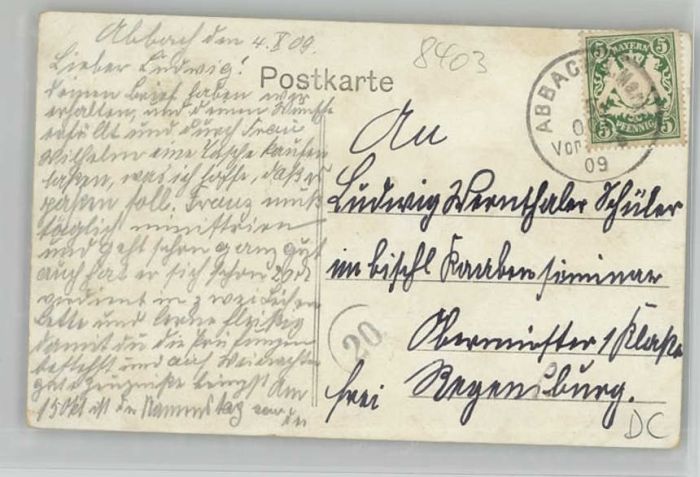 Abbach den 4.X 09.
Lieber Ludwig!
deinen Brief haben wir
erhalten, und deinen Wunsche
und durch Frau
Wilhelm eine Tasche kaufen
laßen, was ich hoffe, daß es
paßen soll. Franz muß
täglich ministrieren
und geht schon ganz gut
auch hat er sich schon 20 M
verdient in zwei
und lerne fleißig
damit du die Prüfungen
bestehst und auf Weinachten
gute Zeugniße bringst Am
15 Okt ist die Namenstag
Postkarte
8403
BAYERN
5 5
5 5
PFENNIG
ABBACH
Vor
09
An
Ludwig Wernthaler Schüler
im bischl Knabenseminar
Obermünster 1 Klaße
frei Regensburg.
20
DC